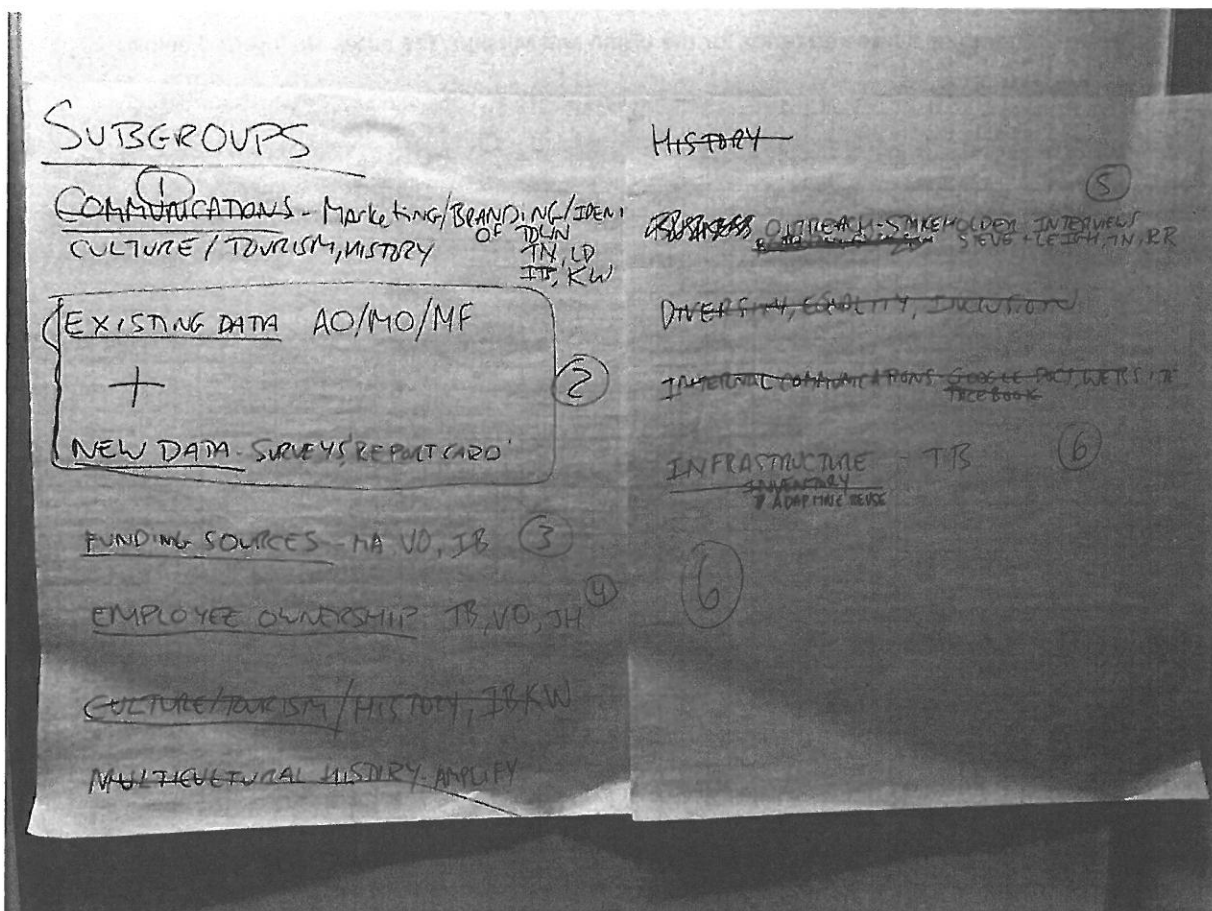 SUBGROUPS
①
COMMUNICATIONS - Marketing/BRANDING/IDEN
OF TOWN
CULTURE / TOURISM, HISTORY
TN, LD
IB, KW
EXISTING DATA AO/MO/MF
+
②
NEW DATA - SURVEYS 'REPORT CARD'
FUNDING SOURCES - MA VO, IB ③
EMPLOYEE OWNERSHIP TB, VO, JH ④
CULTURE/TOURISM/HISTORY, IB KW
MULTICULTURAL HISTORY - AMPLIFY
HISTORY
⑤
BUSINESS OUTREACH - STAKEHOLDER INTERVIEWS
STEVE + LEIGH, TN, RR
DIVERSITY, EQUALITY, INCLUSION
INTERNAL COMMUNICATIONS GOOGLE DOCS, WEBSITE
FACEBOOK
INFRASTRUCTURE - TB ⑥
INVENTORY
ADAPTIVE REUSE
⑥